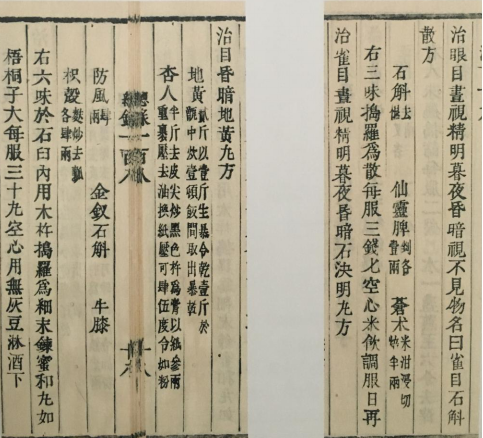 治眼目晝視精明暮夜昏暗視不見物名曰雀目石斛
散方
石斛去 仙靈脾剉各 蒼术米泔浸切
右三味搗羅為散每服三錢匕空心米飲調服日再
治雀目晝視精明暮夜昏暗石決明丸方
治目昏暗地黃丸方
地黃貳斤以壹斤生暴令乾壹斤於甑中炊壹頓飯間取出暴乾
杏人半斤去皮尖炒黑色杵為膏以紙叄兩重裹壓去油換紙壓可肆伍度令如粉
總錄一百八
防風 金釵石斛 牛膝
枳殼麩炒去瓤各肆兩
右六味於石臼內用木杵搗羅為細末鍊蜜和丸如
梧桐子大每服三十丸空心用無灰豆淋酒下